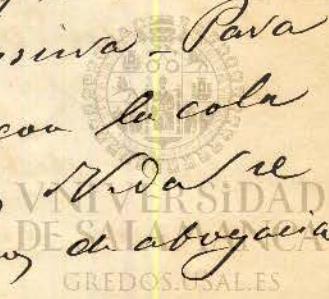 Para
con la cola
Vidal se
de abogacia
VNiVERSiDAD
DE SALAMANCA
GREDOS.USAL.ES